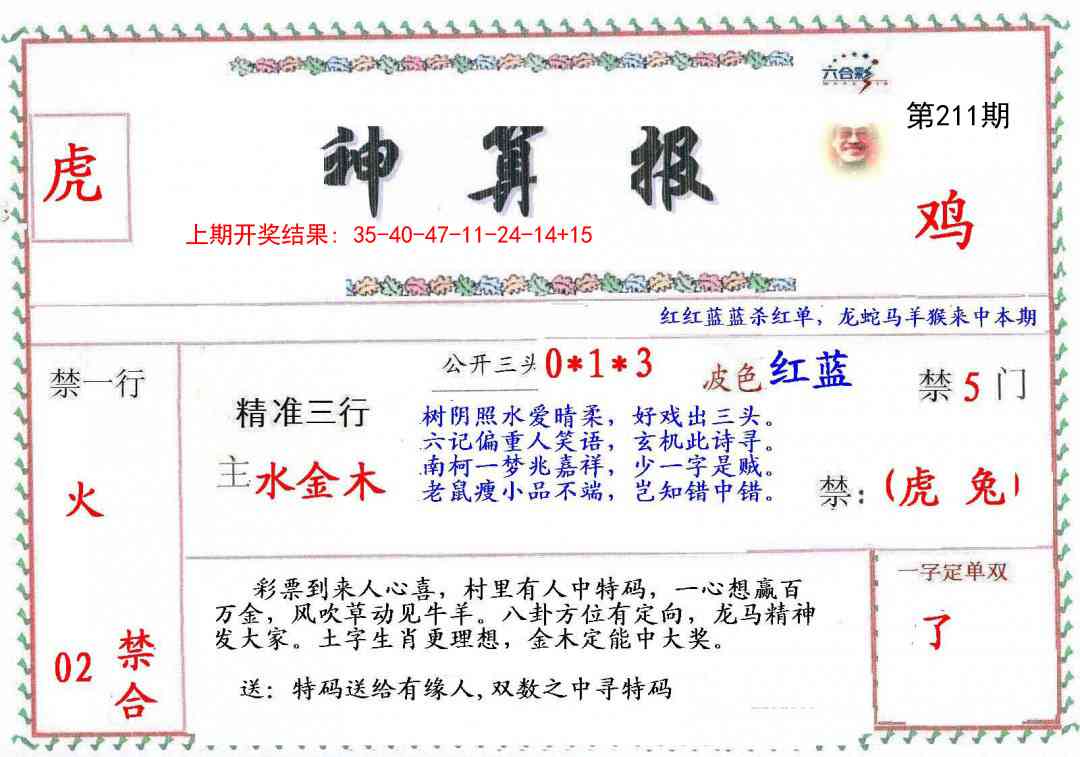 六合彩
第211期
虎
神算报
鸡
上期开奖结果: 35-40-47-11-24-14+15
红红蓝蓝杀红单，龙蛇马羊猴来中本期
禁一行
公开三头 0*1*3
波色 红蓝
禁 5 门
精准三行
主 水金木
树阴照水爱晴柔，好戏出三头。
六记偏重人笑语，玄机此诗寻。
南柯一梦兆嘉祥，少一字是贼。
老鼠瘦小品不端，岂知错中错。
禁：(虎 兔)
火
彩票到来人心喜，村里有人中特码，一心想赢百
万金，风吹草动见牛羊。八卦方位有定向，龙马精神
发大家。土字生肖更理想，金木定能中大奖。
送：特码送给有缘人,双数之中寻特码
一字定单双
了
02 禁合